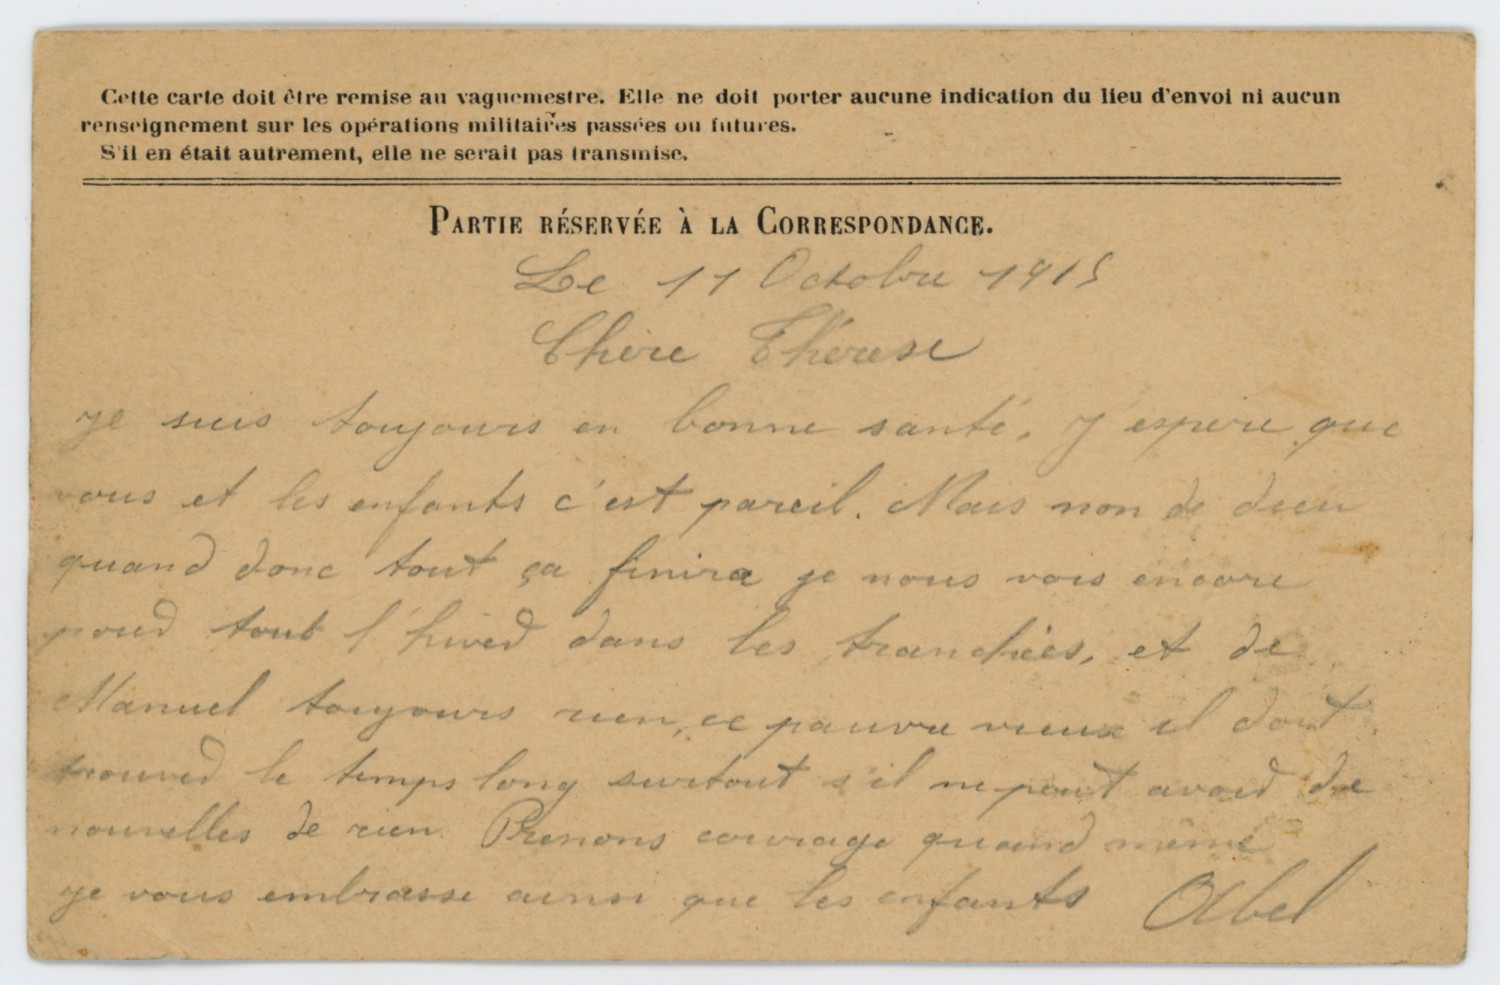 Cette carte doit être remise au vaguemestre. Elle ne doit porter aucune indication du lieu d'envoi ni aucun
renseignement sur les opérations militaires passées ou futures.
S'il en était autrement, elle ne serait pas transmise.
PARTIE RÉSERVÉE À LA CORRESPONDANCE.
Le 11 Octobre 1915
Chère Thérèse
je suis toujours en bonne santé, j'espère que
vous et les enfants c'est pareil. Mais non de dieu
quand donc tout ça finira je nous vois encore
pour tout l'hiver dans les tranchées, et de
Manuel toujours rien, ce pauvre vieux il doit
trouver le temps long surtout s'il ne peut avoir de
nouvelles de rien. Prenons courage quand même
je vous embrasse ainsi que les enfants Abel